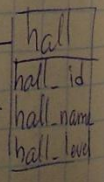 hall
hall_id
hall_name
hall_level